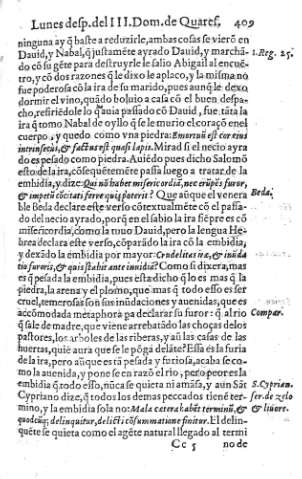 Lunes desp. del III. Dom. de Quares. 409
ninguna ay q̃ baste a reduzirle, ambas cosas se vierõ en
Dauid, y Nabal, q̃ justamẽte ayrado Dauid, y marchã- 1. Reg. 25.
do cõ su gẽte para destruyrle le salio Abigail al encuẽ-
tro, y cõ dos razones q̃ le dixo le aplaco, y la misma no
fue poderosa cõ la ira de su marido, pues aunq̃ le dexo
dormir el vino, quãdo boluio a casa cõ el buen despa-
cho, refiriẽdole lo q̃ auia passado cõ Dauid, fue tãta la
ira q̃ tomo Nabal de oyllo q̃ se le murio el coraçõ en el
cuerpo, y quedo como vna piedra: Emortuũ est cor eius
intrinsecus, & factus est quasi lapis. Mirad si el necio ayra
do es pesado como piedra. Auiẽdo pues dicho Salomõ
esto de la ira, cõsequẽtemẽte passa luego a tratar de la
embidia, y dize: Quis nõ habet misericordiã, nec erũpẽs furor,
& impetũ cõcitati ferre quis poterit? Que aũque el venera Beda.
ble Beda declare este verso cõtextualmẽte cõ el passa-
do del necio ayrado, porq̃ en el sabio la ira siẽpre es cõ
misericordia, como la tuuo Dauid, pero la lengua He-
brea declara este verso, cõparãdo la ira cõ la embidia,
y dexãdo la embidia por mayor: Crudelitas iræ, & inũda
tio furoris, & quis stabit ante inuidiã? Como si dixera, mas
es q̃ pesada la embidia, pues està dicho q̃ lo es mas q̃ la
piedra, la arena y el plomo, que mas q̃ todo esso es ser
cruel, temerosas son sus inũdaciones y auenidas, que es
accõmodada metaphora pa declarar su furor: q̃ al rio Compar.
q̃ sale de madre, que viene arrebatãdo las choças delos
pastores, los arboles de las riberas, y aũ las casas de las
huertas, quiẽ aura que se le põga delãte? Essa es la furia
de la ira, pero aũque es tã pesada y furiosa, acaba seco-
mo la auenida, y pone se en razõ el rio, pero peor es la
embidia q̃ todo esso, nũca se quieta ni amãsa, y aun Sãt S. Cyprian.
Cypriano dize, q̃ todos los demas peccados tiene ter- ser. de zelo
mino, y la embidia sola no: Mala cetera habẽt terminũ, & & liuore.
quodcũq; delinquitur, delicti cõsummatione finitur. El delin-
quẽte se quieta como el agẽte natural llegado al termi
Cc 5 no de